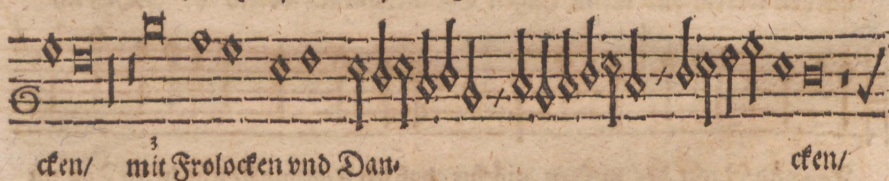 3
cken/ mit Frolocken vnd Dan- cken/